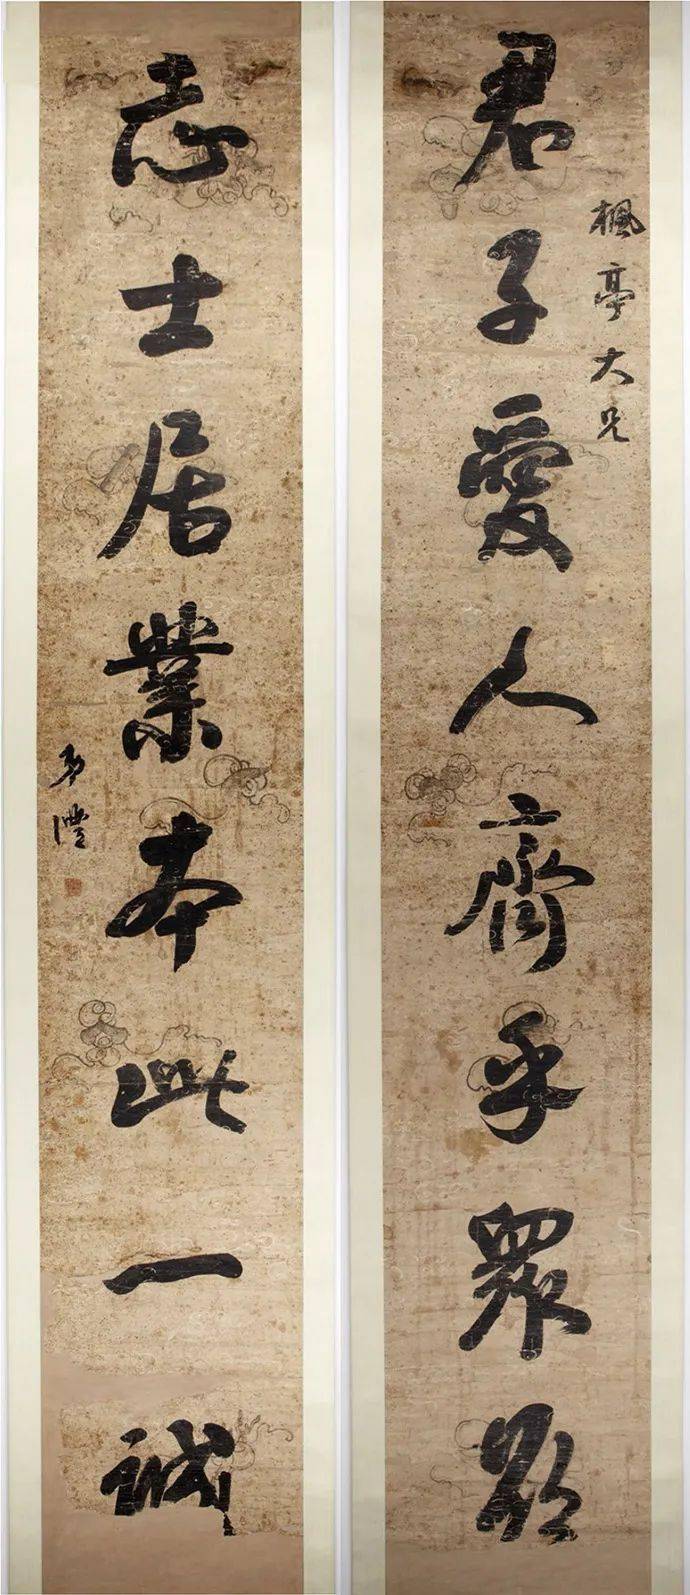 楓亭大兄
君子愛人齊乎眾
志士居業本此一誠
灃